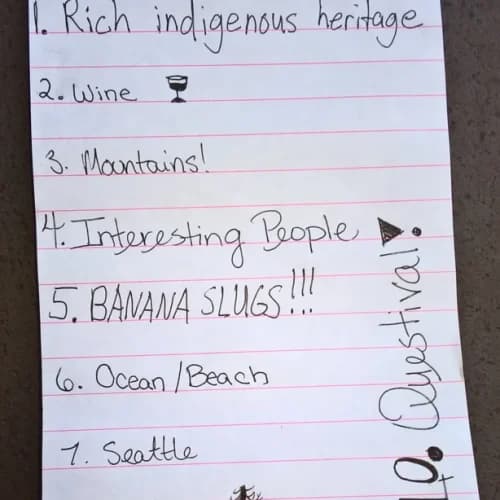 1. Rich indigenous heritage
2. Wine
3. Mountains!
4. Interesting People
5. BANANA SLUGS!!!
6. Ocean/Beach
7. Seattle
10. Questival!